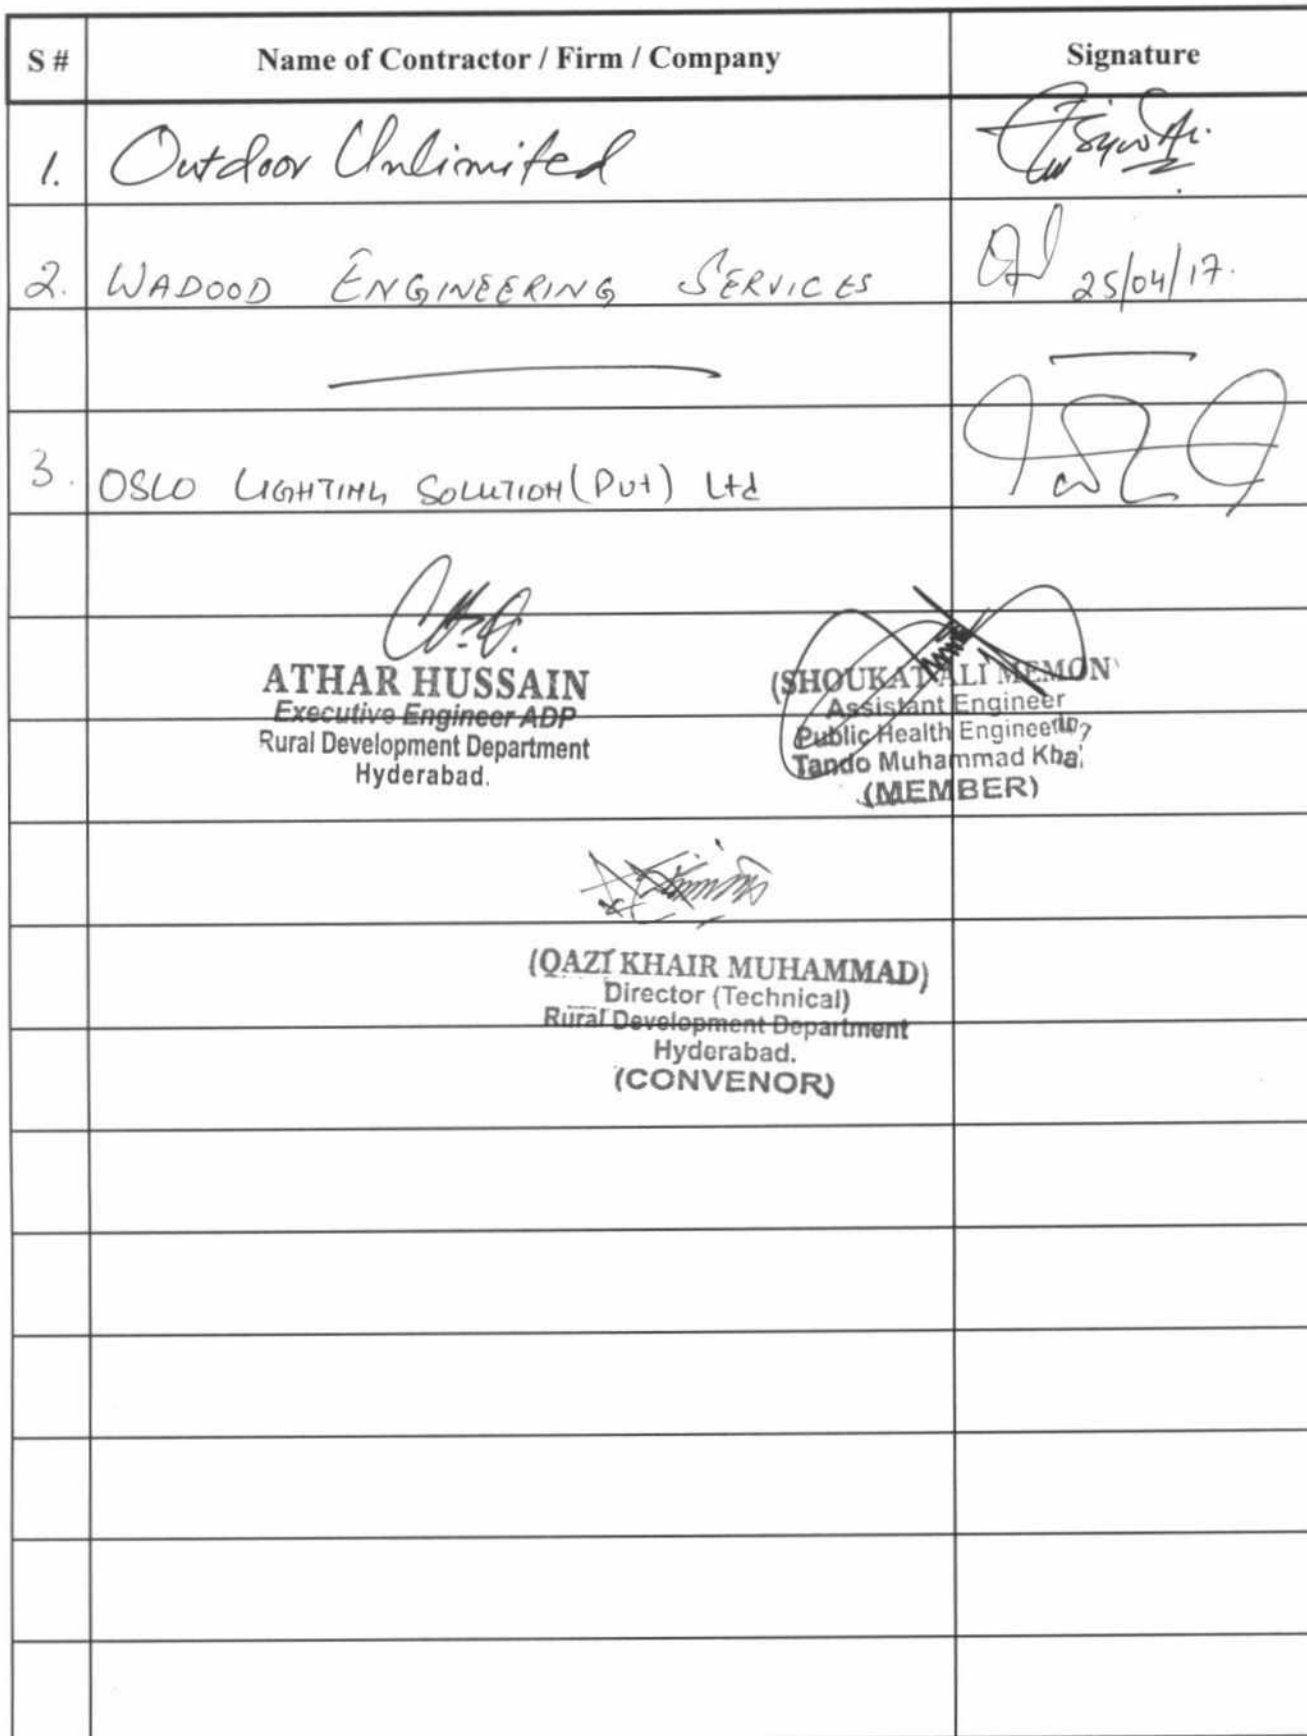 S # Name of Contractor / Firm / Company Signature
1. Outdoor Unlimited
2. WADOOD ENGINEERING SERVICES 25/04/17.
3. OSLO LIGHTING SOLUTION (Pvt) Ltd
ATHAR HUSSAIN
Executive Engineer ADP
Rural Development Department
Hyderabad.
(SHOUKAT ALI MEMON
Assistant Engineer
Public Health Engineering
Tando Muhammad Kha
(MEMBER)
(QAZI KHAIR MUHAMMAD)
Director (Technical)
Rural Development Department
Hyderabad.
(CONVENOR)